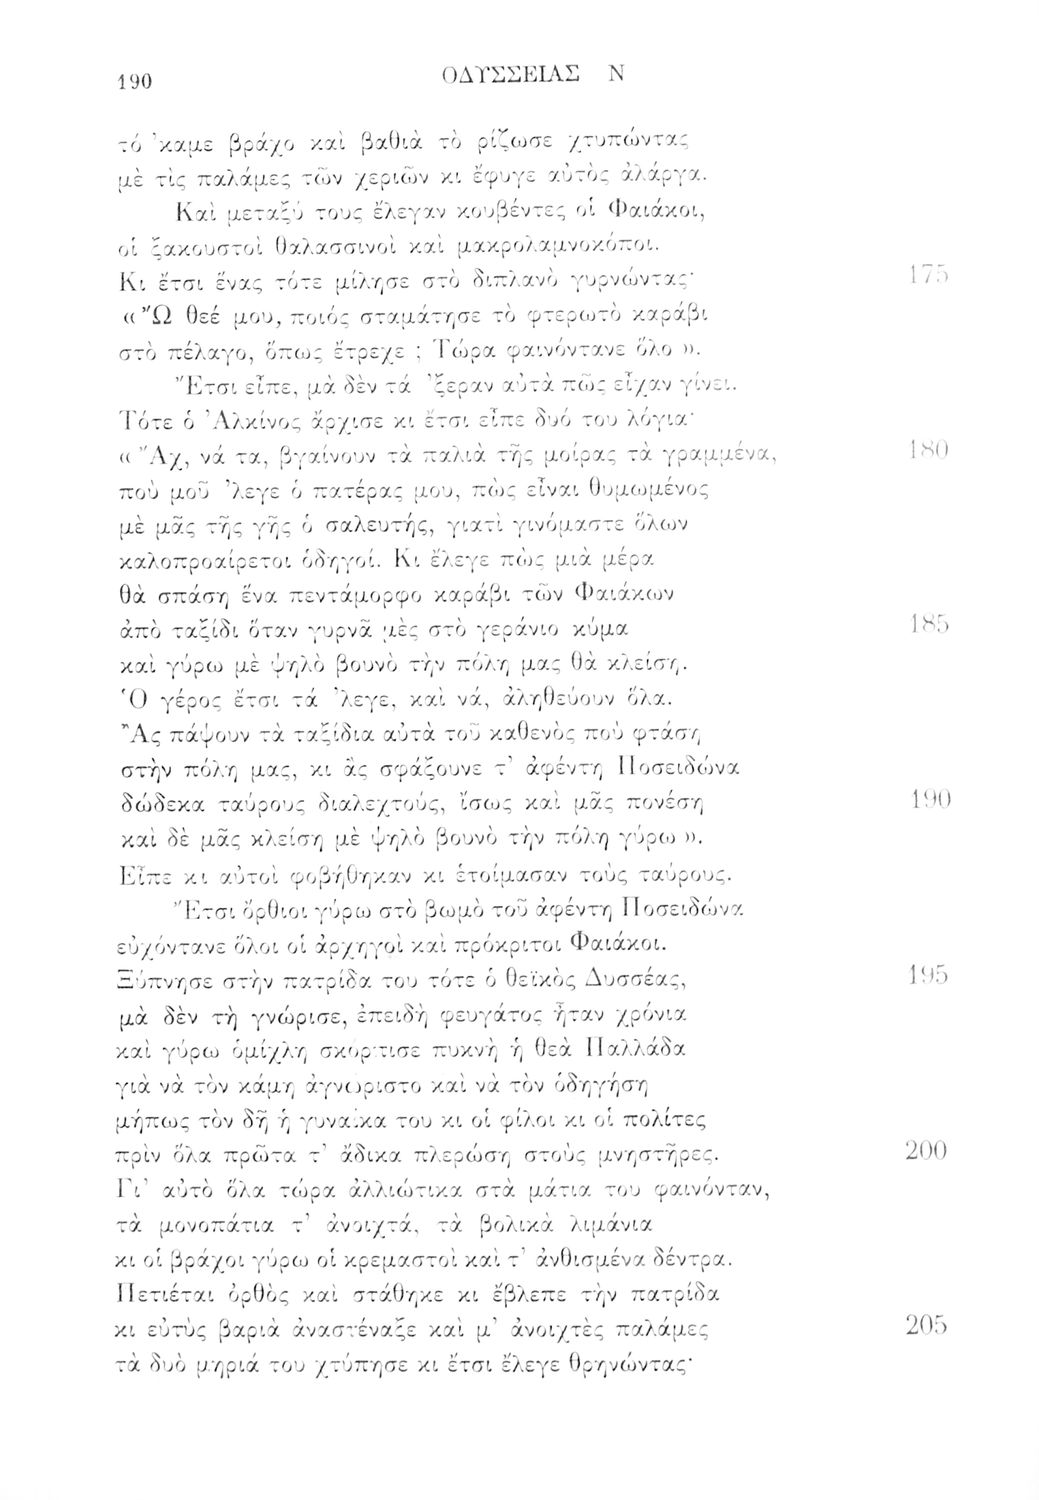 190
ΟΔΥΣΣΕΙΑΣ Ν
τό ’καμε βράχο καὶ βαθιὰ τὸ ρίζωσε χτυπώντας
μὲ τὶς παλάμες τῶν χεριῶν κι ἔφυγε αὐτὸς ἀλάργα.
Καὶ μεταξύ τους ἔλεγαν κουβέντες οἱ Φαιάκοι,
οἱ ξακουστοὶ θαλασσινοὶ καὶ μακρολαμνοκόποι.
Κι ἔτσι ἕνας τότε μίλησε στὸ διπλανὸ γυρνώντας· 175
« Ὢ θεέ μου, ποιός σταμάτησε τὸ φτερωτὸ καράβι
στὸ πέλαγο, ὅπως ἔτρεχε ; Τώρα φαινόντανε ὅλο ».
Ἔτσι εἶπε, μὰ δὲν τά ’ξεραν αὐτὰ πῶς εἶχαν γίνει.
Τότε ὁ Ἀλκίνος ἄρχισε κι ἔτσι εἶπε δυό του λόγια·
« Ἄχ, νά τα, βγαίνουν τὰ παλιὰ τῆς μοίρας τὰ γραμμένα, 180
ποὺ μοῦ ’λεγε ὁ πατέρας μου, πὼς εἶναι θυμωμένος
μὲ μᾶς τῆς γῆς ὁ σαλευτής, γιατὶ γινόμαστε ὅλων
καλοπροαίρετοι ὁδηγοί. Κι ἔλεγε πὼς μιὰ μέρα
θὰ σπάση ἕνα πεντάμορφο καράβι τῶν Φαιάκων
ἀπὸ ταξίδι ὅταν γυρνᾶ μὲς στὸ γεράνιο κύμα 185
καὶ γύρω μὲ ψηλὸ βουνὸ τὴν πόλη μας θὰ κλείση.
Ὁ γέρος ἔτσι τά ’λεγε, καὶ νά, ἀληθεύουν ὅλα.
Ἂς πάψουν τὰ ταξίδια αὐτὰ τοῦ καθενὸς ποὺ φτάση
στὴν πόλη μας, κι ἂς σφάξουνε τ’ ἀφέντη Ποσειδώνα
δώδεκα ταύρους διαλεχτούς, ἴσως καὶ μᾶς πονέση 190
καὶ δὲ μᾶς κλείση μὲ ψηλὸ βουνὸ τὴν πόλη γύρω ».
Εἶπε κι αὐτοὶ φοβήθηκαν κι ἑτοίμασαν τοὺς ταύρους.
Ἔτσι ὄρθιοι γύρω στὸ βωμὸ τοῦ ἀφέντη Ποσειδώνα
εὐχόντανε ὅλοι οἱ ἀρχηγοὶ καὶ πρόκριτοι Φαιάκοι.
Ξύπνησε στὴν πατρίδα του τότε ὁ θεϊκὸς Δυσσέας, 195
μὰ δὲν τὴ γνώρισε, ἐπειδὴ φευγάτος ἦταν χρόνια
καὶ γύρω ὁμίχλη σκόρπισε πυκνὴ ἡ θεὰ Παλλάδα
γιὰ νὰ τὸν κάμη ἀγνώριστο καὶ νὰ τὸν ὁδηγήση
μήπως τὸν δῆ ἡ γυναίκα του κι οἱ φίλοι κι οἱ πολίτες
πρὶν ὅλα πρῶτα τ’ ἄδικα πλερώση στοὺς μνηστῆρες. 200
Γι’ αὐτὸ ὅλα τώρα ἀλλιώτικα στὰ μάτια του φαινόνταν,
τὰ μονοπάτια τ’ ἀνοιχτά, τὰ βολικὰ λιμάνια
κι οἱ βράχοι γύρω οἱ κρεμαστοὶ καὶ τ’ ἀνθισμένα δέντρα.
Πετιέται ὀρθὸς καὶ στάθηκε κι ἔβλεπε τὴν πατρίδα
κι εὐτὺς βαριὰ ἀναστέναξε καὶ μ’ ἀνοιχτὲς παλάμες 205
τὰ δυὸ μηριά του χτύπησε κι ἔτσι ἔλεγε θρηνώντας·